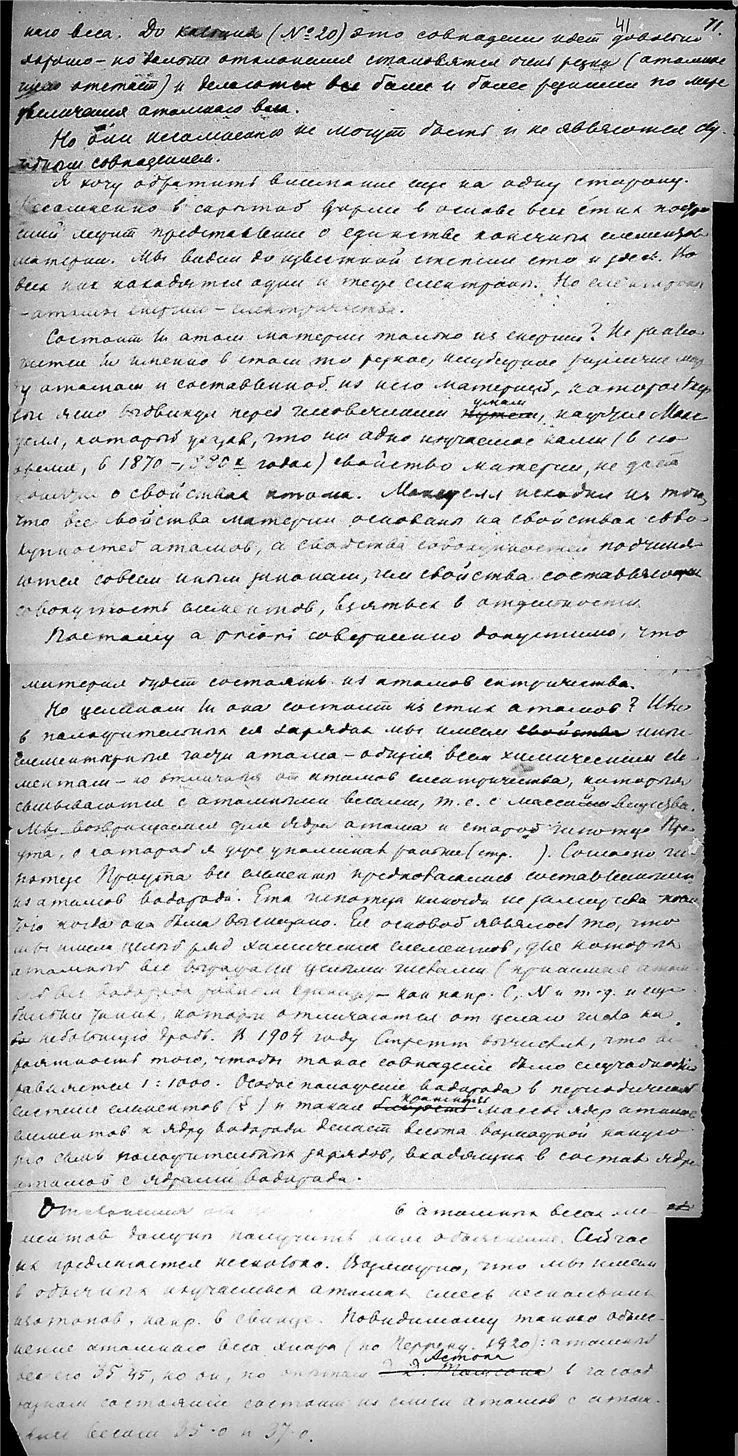 41 71.
наго веса. До кальция (№ 20) это совпадение идет довольно
хорошо – но дальше отклонения становятся очень резки (атомное
число отстает) и делаются все более и более резкими по мере
увеличения атомного веса.
Но они несомненно не могут быть и не являются слу-
чайным совпадением.
Я хочу обратить внимание еще на одну сторону.
Несомненно в скрытой форме в основе всех этих
лежит представление о единстве конечных элементов
материи. Мы видим до известной степени это и здесь. Во
всех них находятся одни и те же электроны. Но электроны
– атомы энергии – электричества.
Состоит ли атом материи только из энергии? Не
ли именно в этом то резкое, различие меж-
ду атомом и составленной из него материей, которое
ясно выдвинул перед человеческим умом, Макс-
уэлл, который указал, что ни одно изучаемое нами (в его
время, в 1870 – 1880х годах) свойство материи, не дает
понятия о свойствах атома. Максуэлл исходил из того,
что все свойства материи основаны на свойствах сово-
купностей атомов, а свойства совокупностей подчиня-
ются совсем иным законам, чем свойства составляющих
совокупность элементов, взятых в отдельности.
Поэтому a priori совершенно допустимо, что
материя будет состоять из атомов ектричества.
Но целиком ли она состоит из этих атомов?
в положительных ея зарядах мы имеем свойства иные
элементарные части атома – общия всем химическим эле-
ментам – но отличныя от атомов электричества, которыя
связываются с атомными весами, т.е. с массой вещества.
Мы возвращаемся для ядра атома к старой гипотезе Про-
ута, о которой я уже упоминал раньше (стр. ). Согласно ги-
потезе Проута все элементы предполагались составленными
из атомов водорода. Эта гипотеза никогда не после
того когда она была высказана. Ея основой являлось то, что
мы имели целый ряд химических элементов, для которых
атомный вес выражался целыми числами (принимая атом-
ный вес водорода равным единице) – как напр. C, N и т.д. и еще
больше таких, которые отличаются от целаго числа на
небольшую дробь. В 1904 году Стретт вычислил, что ве-
роятность того, чтобы такое совпадение было случайностью
равняется 1 : 1000. Особое положение водорода в периодической
системе элементов (§ ) и также кратность массы ядер атомов
элементов к ядру водорода делает весьма вероятной
тождество положительных зарядов, входящих в состав ядра
атомов с ядрами водорода.
Отклонения от в атомных весах эле-
ментов должны получить иное объяснение. Сейчас
их предлагается несколько. Возможно, что мы имеем
в обычных изучаемых атомах смесь нескольких
изотопов, напр. в свинце. Повидимому таково объяс-
нение атомнаго веса хлора (по Перрену. 1920): атомный
вес его 35.45, но он, по опытам Астона в газооб-
разном состоянии состоит из смеси атомов с атом-
ными весами 35.0 и 37.0.